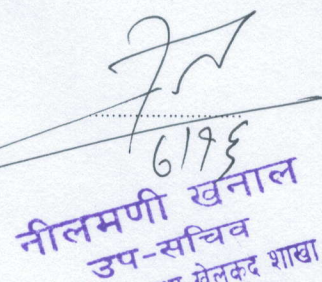 ६।१६
नीलमणी खनाल
उप-सचिव
खेलकुद शाखा